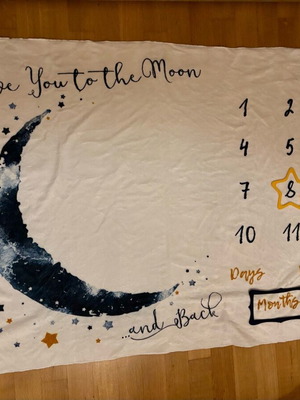 You to the Moon
1 2
4 5
7 8
10 11
Days
Months
...and Back